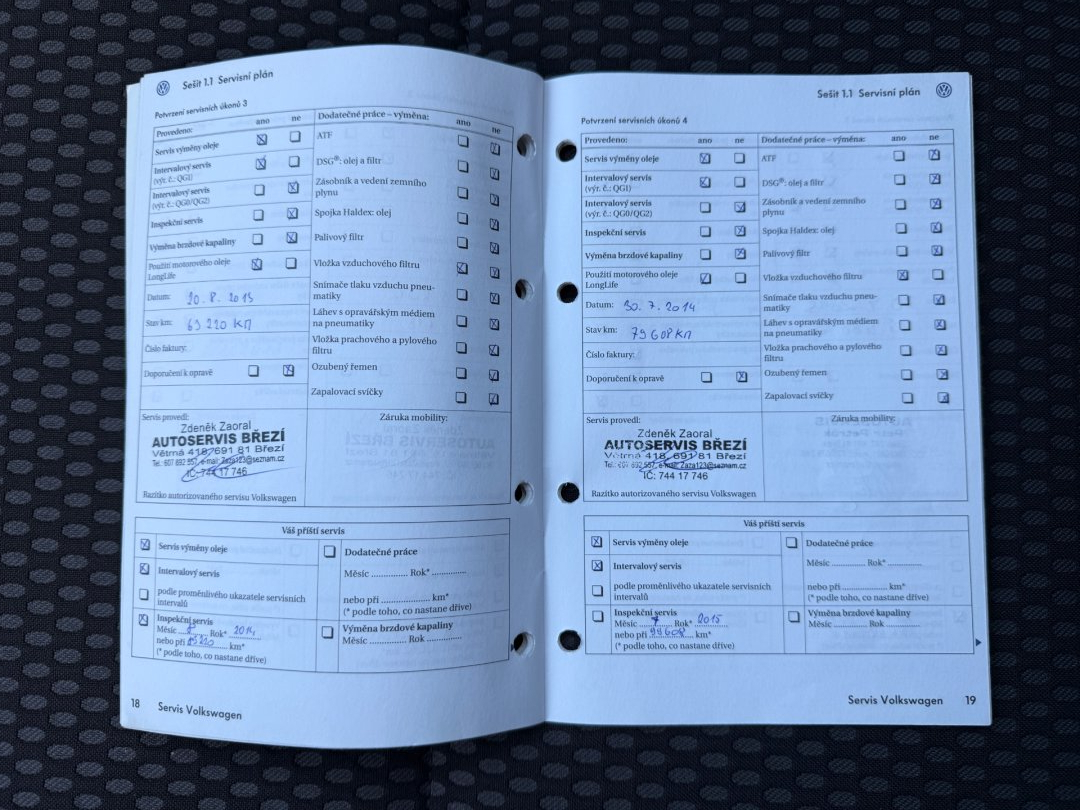 Sešit 1.1 Servisní plán
Potvrzení servisních úkonů 3
Provedeno: ano ne
Servis výměny oleje
Intervalový servis
(výr. č.: QG1)
Intervalový servis
(výr. č.: QG0/QG2)
Inspekční servis
Výměna brzdové kapaliny
Použití motorového oleje
LongLife
Datum: 20. 8. 2013
Stav km: 69 220 KM
Číslo faktury:
Doporučení k opravě
Dodatečné práce – výměna: ano ne
ATF
DSG®: olej a filtr
Zásobník a vedení zemního
plynu
Spojka Haldex: olej
Palivový filtr
Vložka vzduchového filtru
Snímače tlaku vzduchu pneu-
matiky
Láhev s opravářským médiem
na pneumatiky
Vložka prachového a pylového
filtru
Ozubený řemen
Zapalovací svíčky
Servis provedl:
Zdeněk Zaoral
AUTOSERVIS BŘEZÍ
Větrná 418, 691 81 Březí
Tel.: 607 692 557, e-mail: Zaza123@seznam.cz
IČ: 744 17 746
Razítko autorizovaného servisu Volkswagen
Záruka mobility:
Váš příští servis
Servis výměny oleje
Intervalový servis
podle proměnlivého ukazatele servisních
intervalů
Inspekční servis
Měsíc Rok* 2014
nebo při km*
(* podle toho, co nastane dříve)
Dodatečné práce
Měsíc ............... Rok* ..............
nebo při .................. km*
(* podle toho, co nastane dříve)
Výměna brzdové kapaliny
Měsíc ............... Rok ..............
18 Servis Volkswagen
Sešit 1.1 Servisní plán
Potvrzení servisních úkonů 4
Provedeno: ano ne
Servis výměny oleje
Intervalový servis
(výr. č.: QG1)
Intervalový servis
(výr. č.: QG0/QG2)
Inspekční servis
Výměna brzdové kapaliny
Použití motorového oleje
LongLife
Datum: 30. 7. 2014
Stav km: 79 608 KM
Číslo faktury:
Doporučení k opravě
Dodatečné práce – výměna: ano ne
ATF
DSG®: olej a filtr
Zásobník a vedení zemního
plynu
Spojka Haldex: olej
Palivový filtr
Vložka vzduchového filtru
Snímače tlaku vzduchu pneu-
matiky
Láhev s opravářským médiem
na pneumatiky
Vložka prachového a pylového
filtru
Ozubený řemen
Zapalovací svíčky
Servis provedl:
Zdeněk Zaoral
AUTOSERVIS BŘEZÍ
Větrná 418, 691 81 Březí
Tel.: 607 692 557, e-mail: Zaza123@seznam.cz
IČ: 744 17 746
Razítko autorizovaného servisu Volkswagen
Záruka mobility:
Váš příští servis
Servis výměny oleje
Intervalový servis
podle proměnlivého ukazatele servisních
intervalů
Inspekční servis
Měsíc 7 Rok* 2015
nebo při 94608 km*
(* podle toho, co nastane dříve)
Dodatečné práce
Měsíc ............... Rok* ..............
nebo při .................. km*
(* podle toho, co nastane dříve)
Výměna brzdové kapaliny
Měsíc ............... Rok ..............
Servis Volkswagen 19